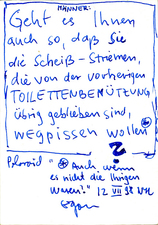 MÄNNER:
Geht es Ihnen
auch so, daß Sie
die Scheiß-Striemen,
die von der vorherigen
TOILETTENBENÜTZUNG
übrig geblieben sind,
wegpissen wollen *
?
"* Auch, wenn
es nicht die Ihrigen
waren?" 12 VII